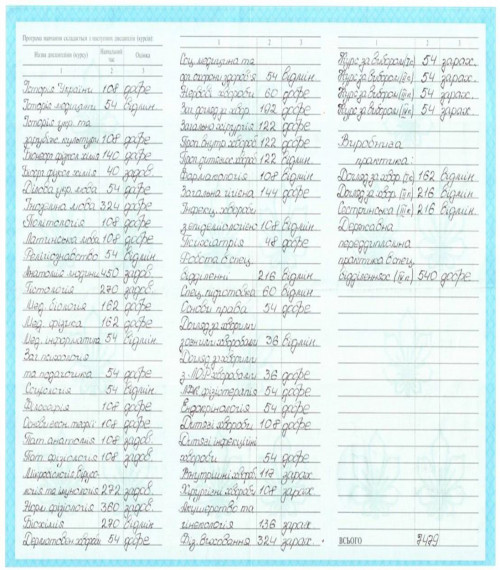 Програма навчання складається з наступних дисциплін (курсів)
Назва дисципліни (курсу) Навчальний час Оцінка
1 2 3
Історія України 108 добре
Історія медицини 54 відмін.
Історія укр. та
зарубіж. культури 108 добре
140 добре
40 задов.
Ділова укр. мова 54 добре
Іноземна мова 324 добре
Політологія 108 добре
Латинська мова 108 добре
Релігієзнавство 54 відмін
Анатомія людини 450 задов.
Гістологія 270 задов.
Мед. біологія 162 добре
Мед. фізика 162 добре
Мед. інформатика 54 відмін
Заг. психологія
та педагогіка 54 добре
Соціологія 54 відмін.
Філософія 108 добре
Основи екон. теорії 108 добре
Пат. анатомія 108 задов.
Пат. фізіологія 108 задов.
Мікробіологія вірусо-
логія та імунологія 272 задов.
Норм. фізіологія 360 задов.
Біохімія 270 відмін
Дерматовен. хвороби 54 добре
2 3
Соц. медицина та
орг. охорони здоров'я 54 відмін.
Нервові хвороби 60 добре
Заг. догляд за хвор. 102 добре
Загальна хірургія 122 добре
Проп. внутр. хвороб 122 добре
Проп. дитячих хвороб 122 відмін
Фармакологія 108 відмін
Загальна гігієна 144 добре
Інфекц. хвороби
з епідеміологією 108 відмін
Психіатрія 48 добре
Робота в спец.
відділенні 216 відмін
Спец. підготовка 60 відмін
Основи права 54 добре
Догляд за хворими
з очними хворобами 36 відмін
Догляд за хворими
з ЛОР хворобами 36 добре
ЛФК фізіотерапія 54 добре
Ендокринологія 54 добре
Дитячі хвороби 108 добре
Дитячі інфекційні
хвороби 54 добре
Внутрішні хвороб. 117 зарах
Хірургічні хвороби 108 зарах
Акушерство та
гінекологія 136 зарах
Фіз. виховання 324 зарах.
1 2 3
Курс за вибором 54 зарах.
Курс за вибором 54 зарах.
Курс за вибором 54 зарах.
Курс за вибором 54 зарах.
Виробнича
практика:
Догляд за хвор. 162 відмін
Догляд за хвор. 216 відмін
Сестринська 216 відмін
Державна
переддипломна
практика в спец.
відділеннях 540 добре
ВСЬОГО 7479